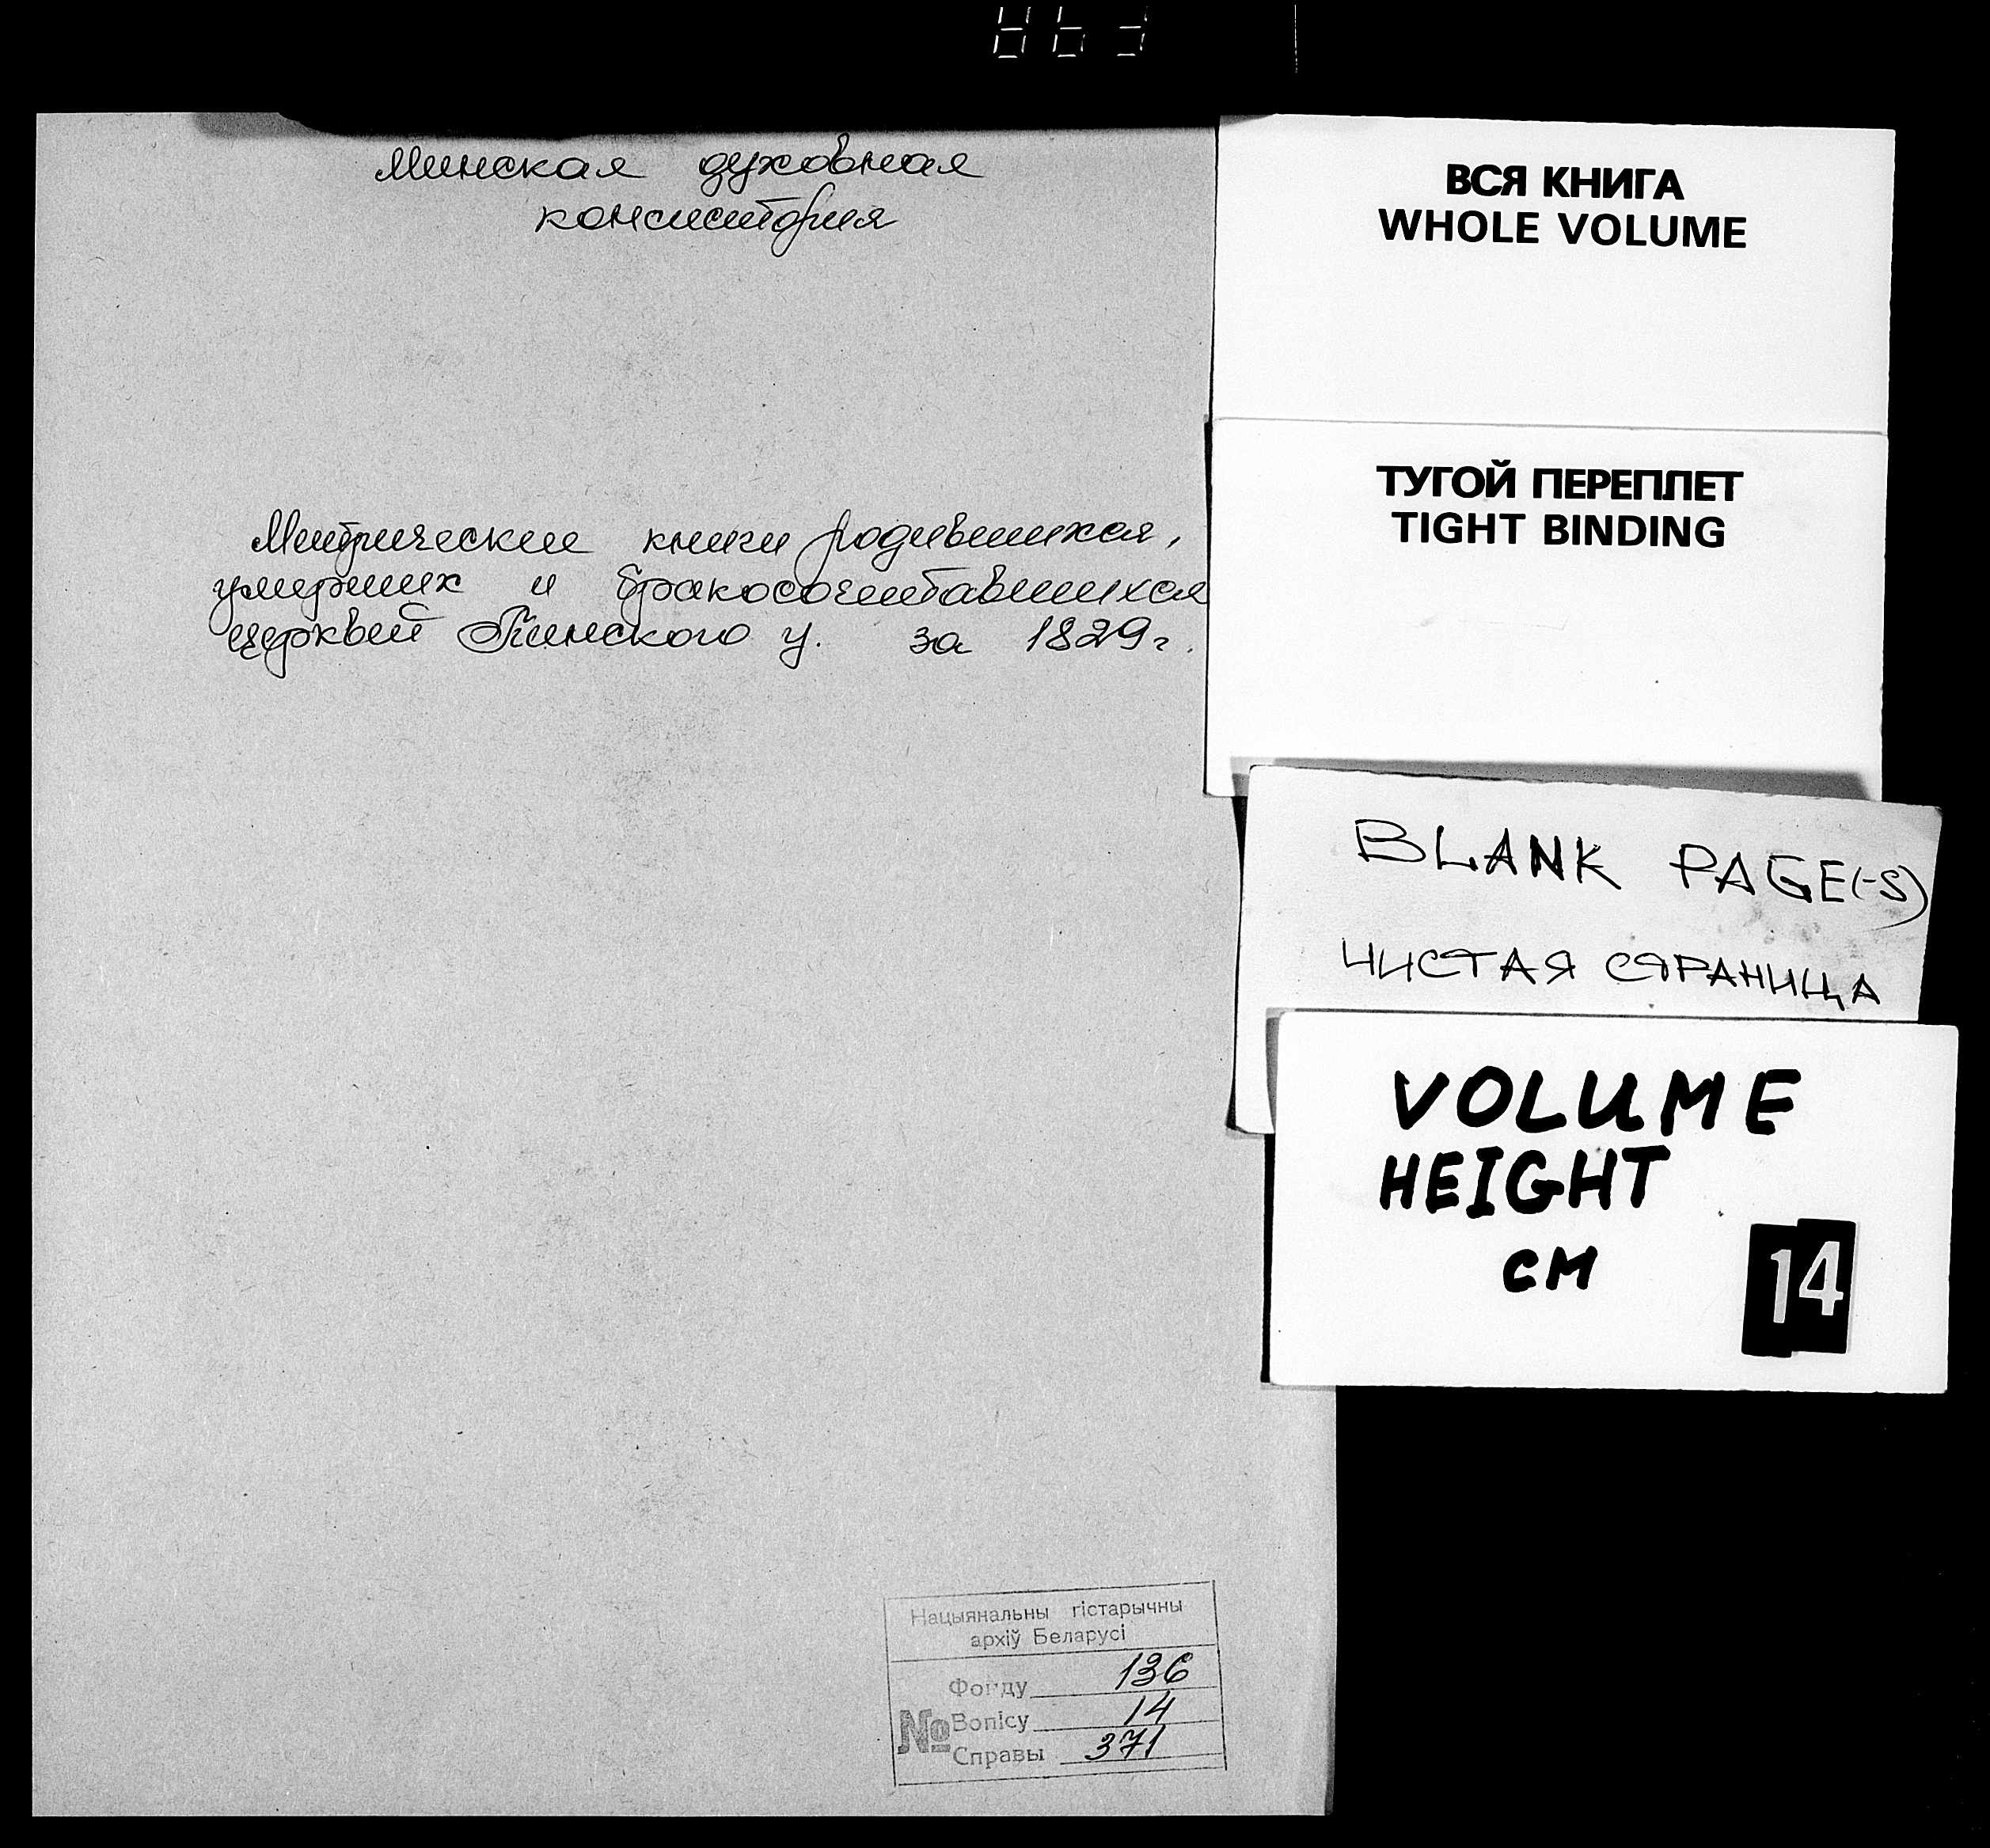 Минская духовная
консистория
Метрические книги родившихся,
умерших и бракосочетавшихся
церквей Пинского у. за 1829 г.
ВСЯ КНИГА
WHOLE VOLUME
ТУГОЙ ПЕРЕПЛЕТ
TIGHT BINDING
BLANK PAGE(-S)
ЧИСТАЯ СТРАНИЦА
VOLUME
HEIGHT
CM 14
Нацыянальны гістарычны
архіў Беларусі
Фонду 136
№ Вопісу 14
Справы 371